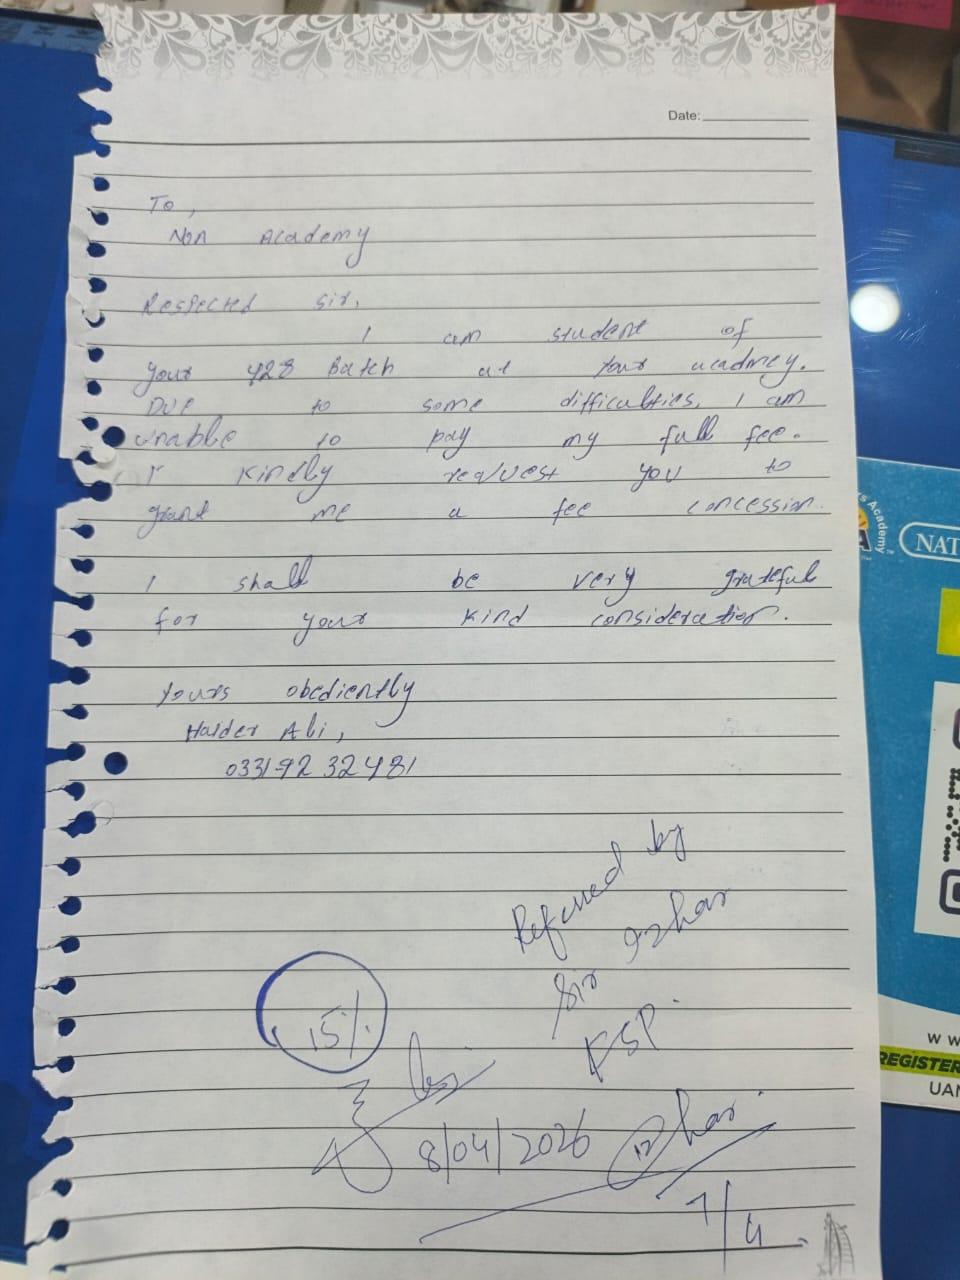 Date:
To,
Non Academy
Respected sir,
I am student of
your 428 Batch at your acadmey.
Due to some difficulties, I am
unable to pay my full fee.
I kindly request you to
grant me a fee concession.
I shall be very grateful
for your kind consideration.
Yours obediently
Haider Ali,
0331-92 32481
Referred by
Sir Izhar
KSP.
15%
8/04/2026
Izhar
7/4
s Academy
NAT
W W
REGISTER
UAN